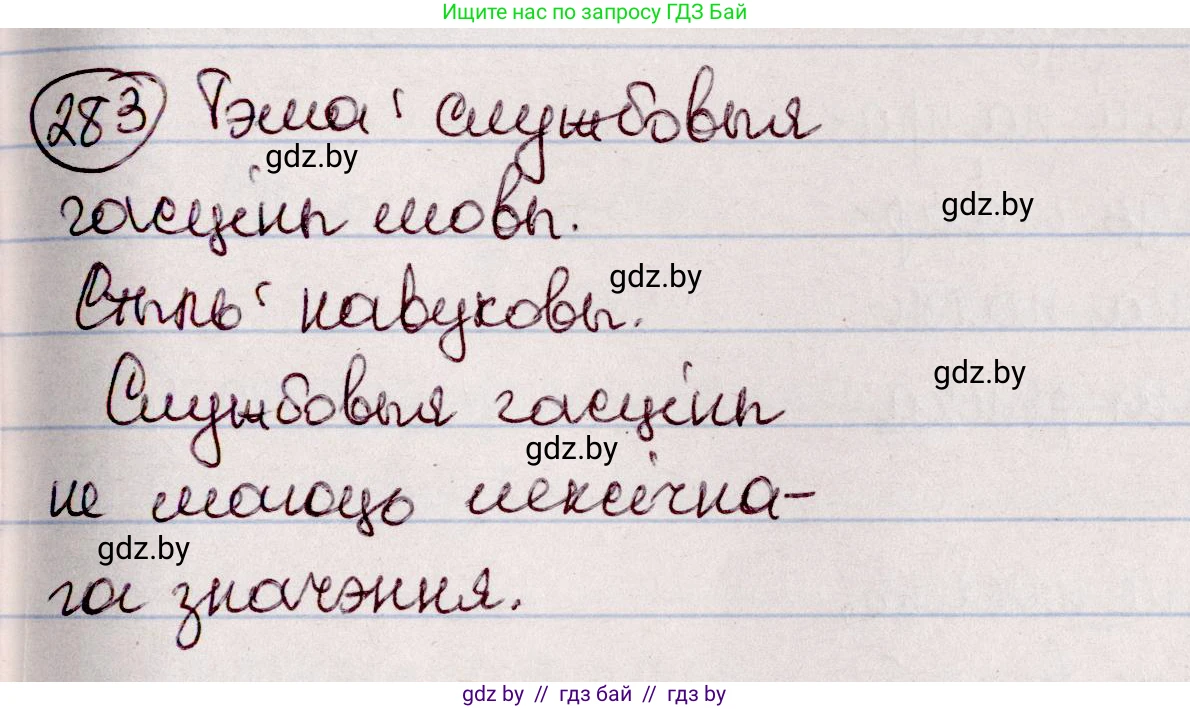 Ищите нас по запросу ГДЗ Бай
283 Тэма: службовыя
gdz.by
часціны мовы.
gdz.by
Стыль: навуковы.
gdz.by
Службовыя часціны
gdz.by
gdz.by
не маюць лексічна-
gdz.by
га значэння.
gdz by // гдз бай // гдз by